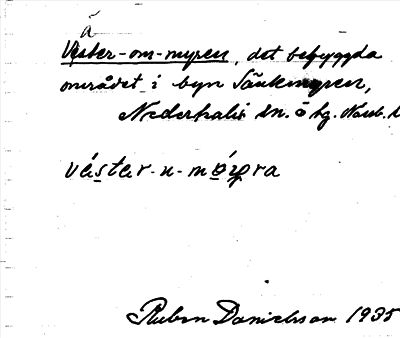 å
Väster-om-myren, det bebyggda
området i byn Sänkmyren,
Nederkalix sn. o hg. Norrb. l
våstar-u-móyra
Ruben Danielsson 1935